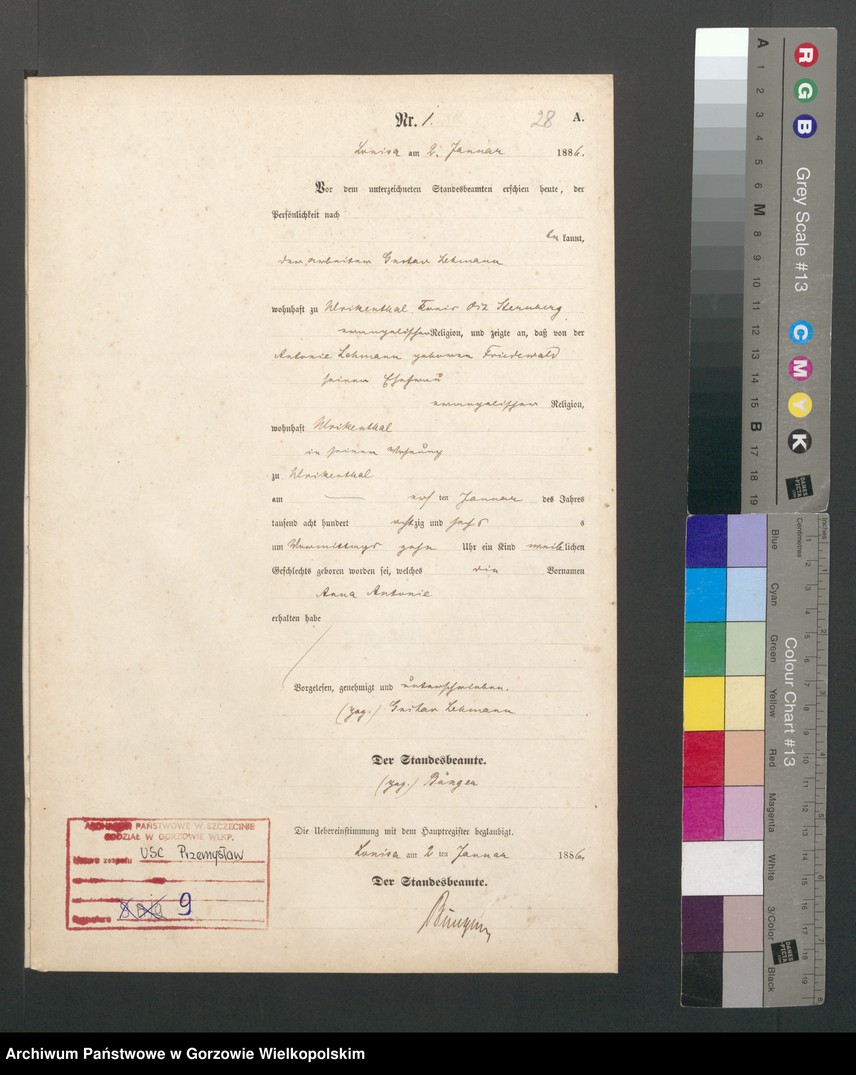 Nr. 1. 28 A.
Louisa am 2. Januar 1886.
Vor dem unterzeichneten Standesbeamten erschien heute, der
Persönlichkeit nach
be kannt,
der Arbeiter Gustav Lehmann
wohnhaft zu Ulrikenthal Kreis Ost Sternberg
evangelischer Religion, und zeigte an, daß von der
Antonie Lehmann geborene Friedewald
seiner Ehefrau
evangelischer Religion,
wohnhaft Ulrikenthal
in seiner Wohnung
zu Ulrikenthal
am ersten Januar des Jahres
tausend acht hundert achtzig und sechs
um Vormittags zehn Uhr ein Kind weiblichen
Geschlechts geboren worden sei, welches die Vornamen
Anna Antonie
erhalten habe
Vorgelesen, genehmigt und unterschrieben.
(gez.) Gustav Lehmann
Der Standesbeamte.
(gez.) Bünger
Die Uebereinstimmung mit dem Hauptregister beglaubigt.
Louisa am 2 ten Januar 1886.
Der Standesbeamte.
Bünger
ARCHIWUM PAŃSTWOWE W SZCZECINIE
ODDZIAŁ W GORZOWIE WLKP.
Nazwa zespołu USC Przemysław
Sygnatura 9
R
G
B
Grey Scale #13
C
M
Y
K
A 1 2 3 4 5 6 M 8 9 10 11 12 13 14 15 B 17 18 19
DANES PICTA .COM
Colour Chart #13
Blue
Cyan
Green
Yellow
Red
Magenta
White
3/Color
Black
Centimetres
Inches
DANES PICTA .COM
Archiwum Państwowe w Gorzowie Wielkopolskim